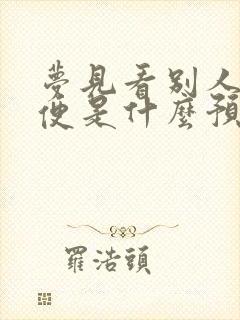 夢見看別人
便是什麼預
羅浩頭